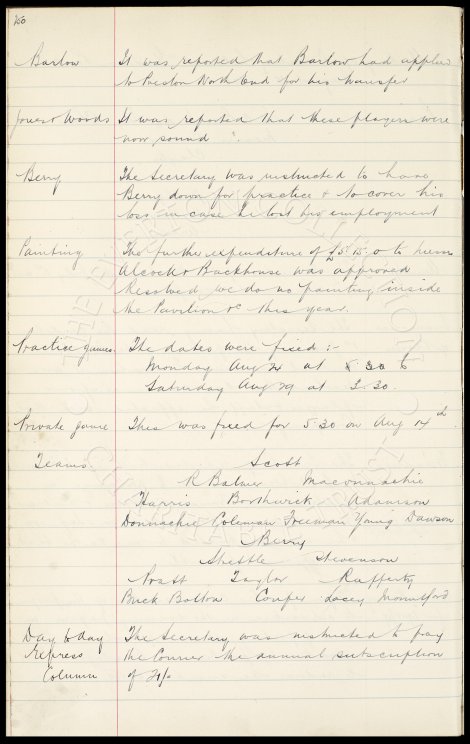 Barlow It was reported that Barlow had applied
to Preston North End for his transfer
Jones & Woods It was reported that these players were
now sound.
Berry The Secretary was instructed to have
Berry down for practice & to cover his
loss in case he lost his employment
Painting The further expenditure of £5.15.0 to Messrs
Alcock & Backhouse was approved
Resolved we do no painting inside
the Pavilion &c this year.
Practice games. The dates were fixed :-
Monday Aug 24 at
Saturday Aug 29 at 3.30.
Private game This was fixed for 5.30 on Aug 14th
Teams. Scott
R Balmer Maconnachie
Harris Borthwick Adamson
Donnachie Coleman Freeman Young Dawson
Berry
Shettle Stevenson
Pratt Taylor Rafferty
Buck Bolton Couper Lacey Mountford
Day to day The Secretary was instructed to pay
Express the Courier the annual subscription
Column of 21/-